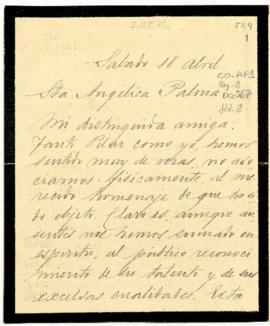 549
1
Sabado 18 Abril
CO-AP1
Sta Angélica Palma
Leg. 2
Doc.
fol. 2
Mi distinguida amiga:
Tanto Pilar como yo, hemos
sentido muy de veras, no aso
ciarnos físicamente, al me
recido homenaje de que ha si
do objeto. Claro es, aunque au
sentes nos hemos sumado en
espíritu, al público reconoci
miento de su talento y de sus
excelsas cualidades. Esta